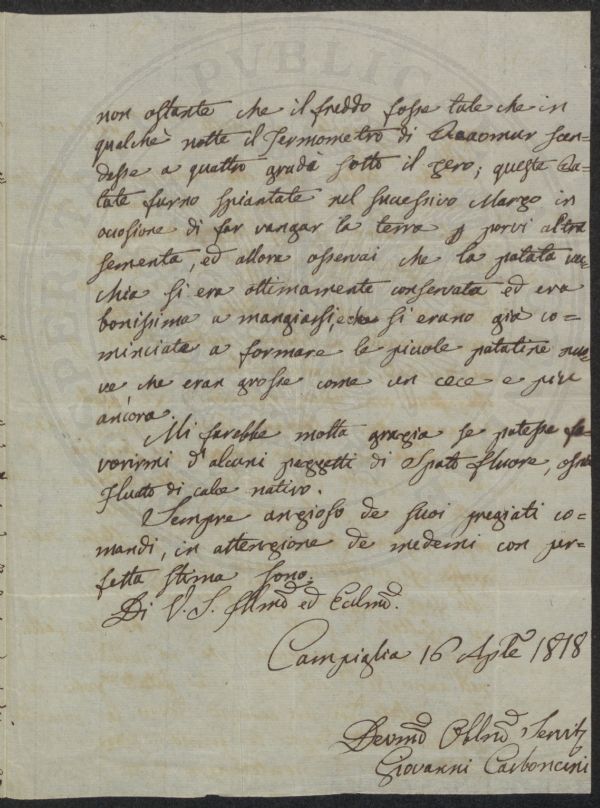 non ostante che il freddo fosse tale che in
qualche notte il Termometro di Reaomur scen-
desse a quattro gradi sotto il zero; queste Pa-
tate furno spiantate nel sucessivo Marzo in
ocasione di far vangar la terra p porvi altra
sementa, ed allora osservai che la patata vec-
chia si era ottimamente conservata ed era
bonissima a mangiarsi, e che si erano già co-
minciate a formare le piccole patatine nuo-
ve che eran grosse come un cece e più
ancora.
Mi farebbe molta grazia se potesse fa-
vorirmi d'alcuni pezzetti di Spato fluore, ossia
Fluato di calce nativo.
Sempre anzioso de suoi pregiati co-
mandi, in attenzione de medemi con per-
fetta stima sono.
Di V. S. Illmo ed Eccلmo.
Campiglia 16 Aple 1818
Devmo Obbmo Servitr
Giovanni Carboncini
PUBLIC